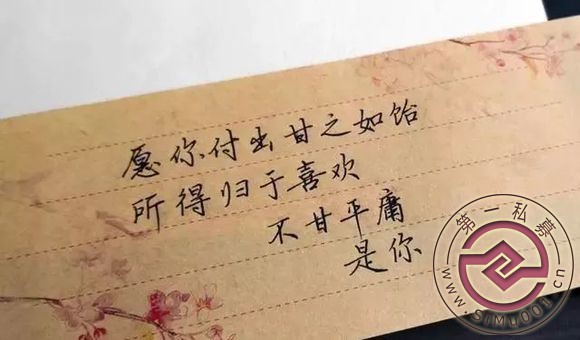 愿你付出甘之如饴
所得归于喜欢
不甘平庸
是你
第一私募
www.simu001.cn